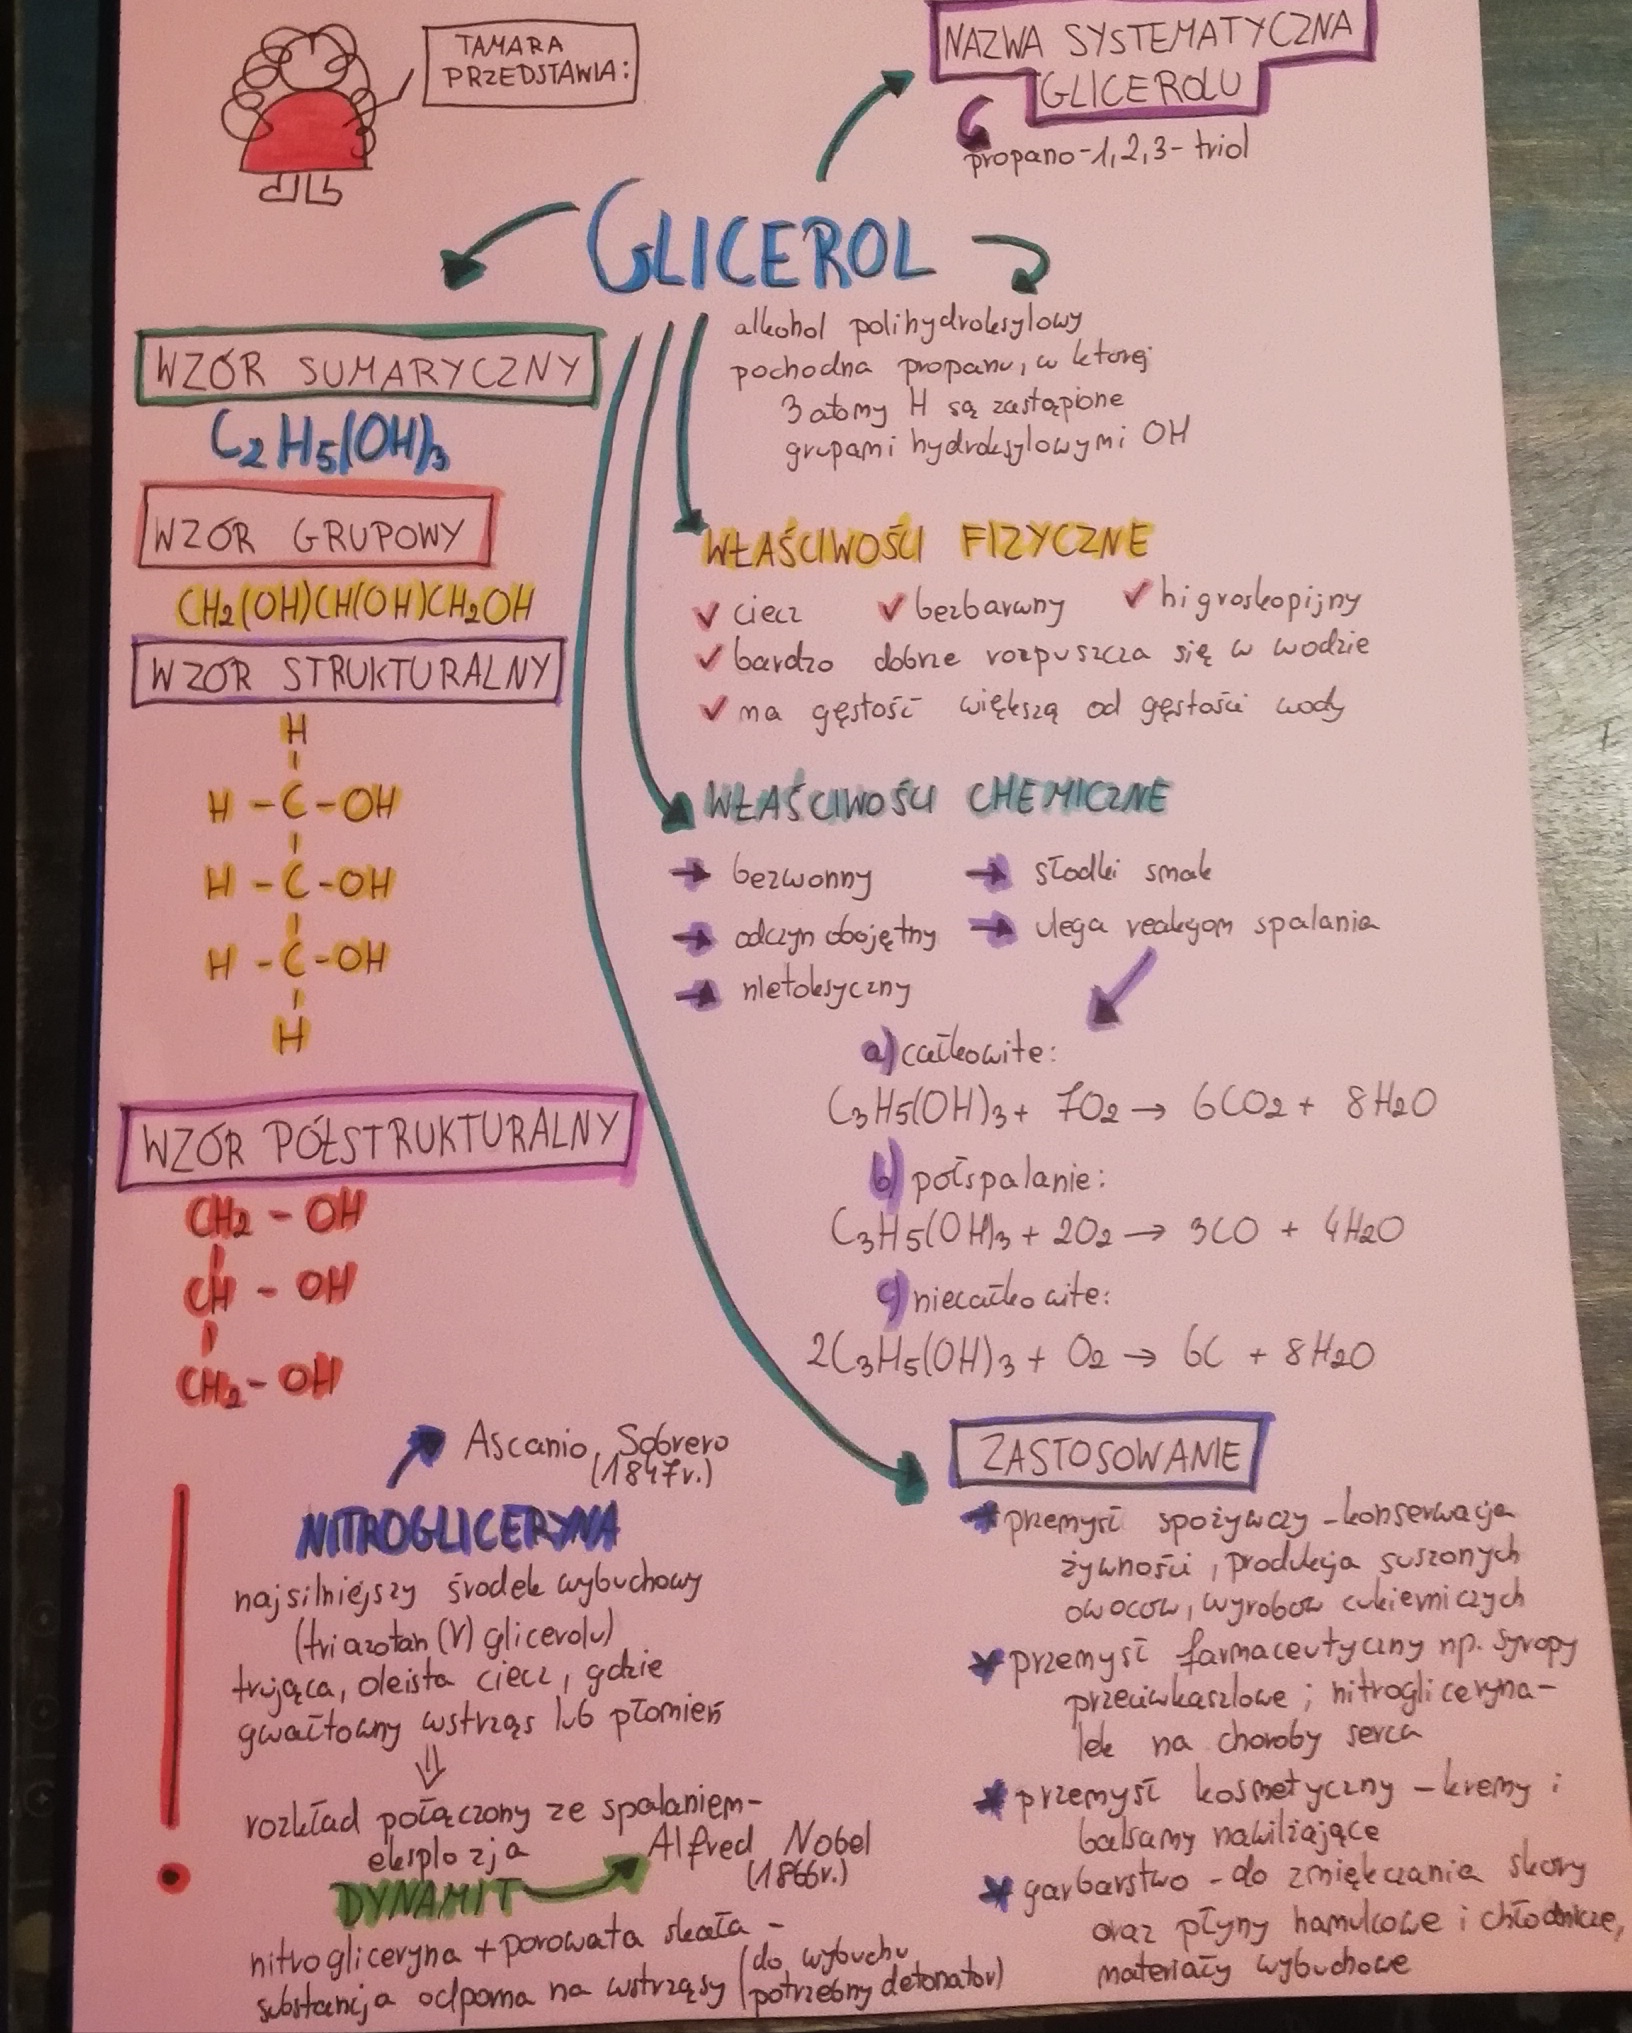 TAMARA
PRZEDSTAWIA:
NAZWA SYSTEMATYCZNA
GLICEROLU
propano-1,2,3-triol
GLICEROL
alkohol polihydroksylowy
pochodna propanu, w której
3 atomy H są zastąpione
grupami hydroksylowymi OH
WZÓR SUMARYCZNY
C2H5(OH)3
WZÓR GRUPOWY
CH2(OH)CH(OH)CH2OH
WZÓR STRUKTURALNY
H
H - C - OH
H - C - OH
H - C - OH
H
WZÓR PÓŁSTRUKTURALNY
CH2 - OH
CH - OH
CH2 - OH
WŁAŚCIWOŚCI FIZYCZNE
✓ ciecz ✓ bezbarwny ✓ higroskopijny
✓ bardzo dobrze rozpuszcza się w wodzie
✓ ma gęstość większą od gęstości wody
WŁAŚCIWOŚCI CHEMICZNE
→ bezwonny → słodki smak
→ odczyn obojętny → ulega reakcjom spalania
→ nietoksyczny
a) całkowite:
C3H5(OH)3 + 7O2 → 6CO2 + 8H2O
b) półspalanie:
C3H5(OH)3 + 2O2 → 3CO + 4H2O
c) niecałkowite:
2C3H5(OH)3 + O2 → 6C + 8H2O
ZASTOSOWANIE
przemysł spożywczy - konserwacja
żywności, produkcja suszonych
owoców, wyrobów cukierniczych
przemysł farmaceutyczny np. syropy
przeciwkaszlowe; nitrogliceryna-
lek na choroby serca
przemysł kosmetyczny - kremy i
balsamy nawilżające
garbarstwo - do zmiękczania skóry
oraz płyny hamulcowe i chłodnicze,
materiały wybuchowe
Ascanio Sobrero
(1847r.)
NITROGLICERYNA
najsilniejszy środek wybuchowy
(triazotan (V) glicerolu)
trująca, oleista ciecz, gdzie
gwałtowny wstrząs lub płomień
⇓
rozkład połączony ze spalaniem-
eksplozja
DYNAMIT → Alfred Nobel
(1866r.)
nitrogliceryna + porowata skała -
substancja odporna na wstrząsy (do wybuchu
potrzebny detonator)